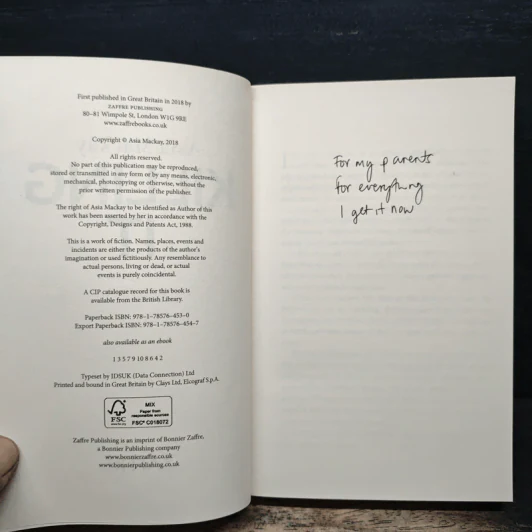 First published in Great Britain in 2018 by
ZAFFRE PUBLISHING
80–81 Wimpole St, London W1G 9RE
www.zaffrebooks.co.uk
Copyright © Asia Mackay, 2018
All rights reserved.
No part of this publication may be reproduced,
stored or transmitted in any form or by any means, electronic,
mechanical, photocopying or otherwise, without the
prior written permission of the publisher.
The right of Asia Mackay to be identified as Author of this
work has been asserted by her in accordance with the
Copyright, Designs and Patents Act, 1988.
This is a work of fiction. Names, places, events and
incidents are either the products of the author's
imagination or used fictitiously. Any resemblance to
actual persons, living or dead, or actual
events is purely coincidental.
A CIP catalogue record for this book is
available from the British Library.
Paperback ISBN: 978–1–78576–453–0
Export Paperback ISBN: 978–1–78576–454–7
also available as an ebook
1 3 5 7 9 10 8 6 4 2
Typeset by IDSUK (Data Connection) Ltd
Printed and bound in Great Britain by Clays Ltd, Elcograf S.p.A.
FSC
www.fsc.org
MIX
Paper from
responsible sources
FSC® C018072
Zaffre Publishing is an imprint of Bonnier Zaffre,
a Bonnier Publishing company
www.bonnierzaffre.co.uk
www.bonnierpublishing.co.uk
For my parents
for everything
I get it now